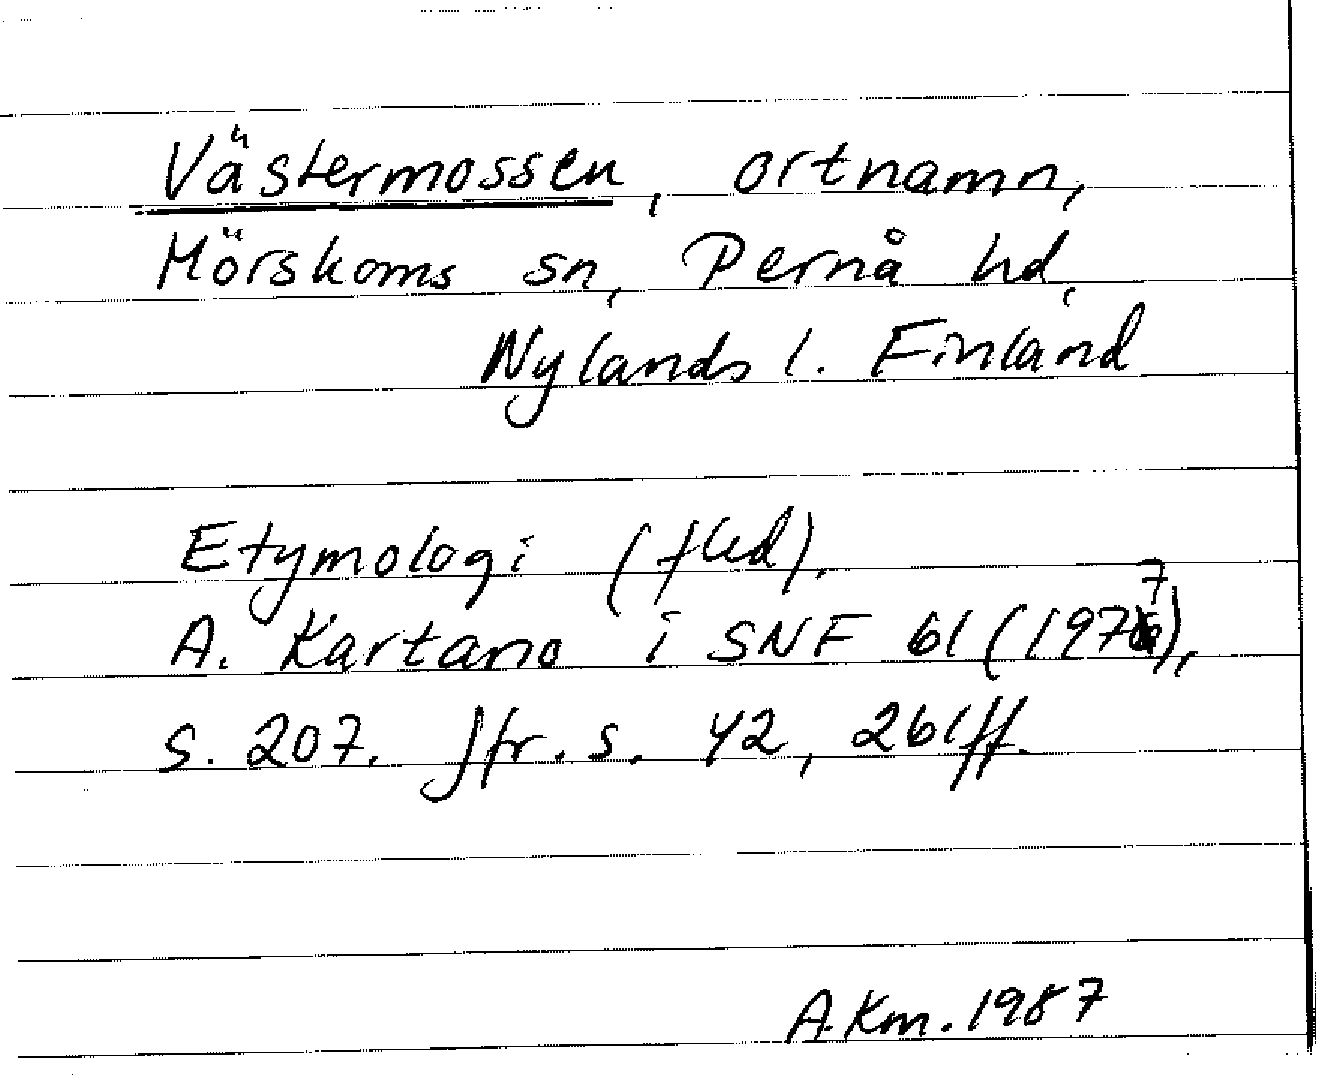 Västermossen, ortnamn,
Mörskoms sn, Pernå hd,
Nylands l. Finland
Etymologi (fled).
A. Kartano i SNF 61 (1977),
s. 207. Jfr. s. 42, 261ff.
A.Km. 1987